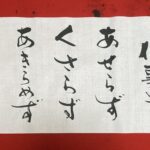 あせらず
くさらず
あきらめず